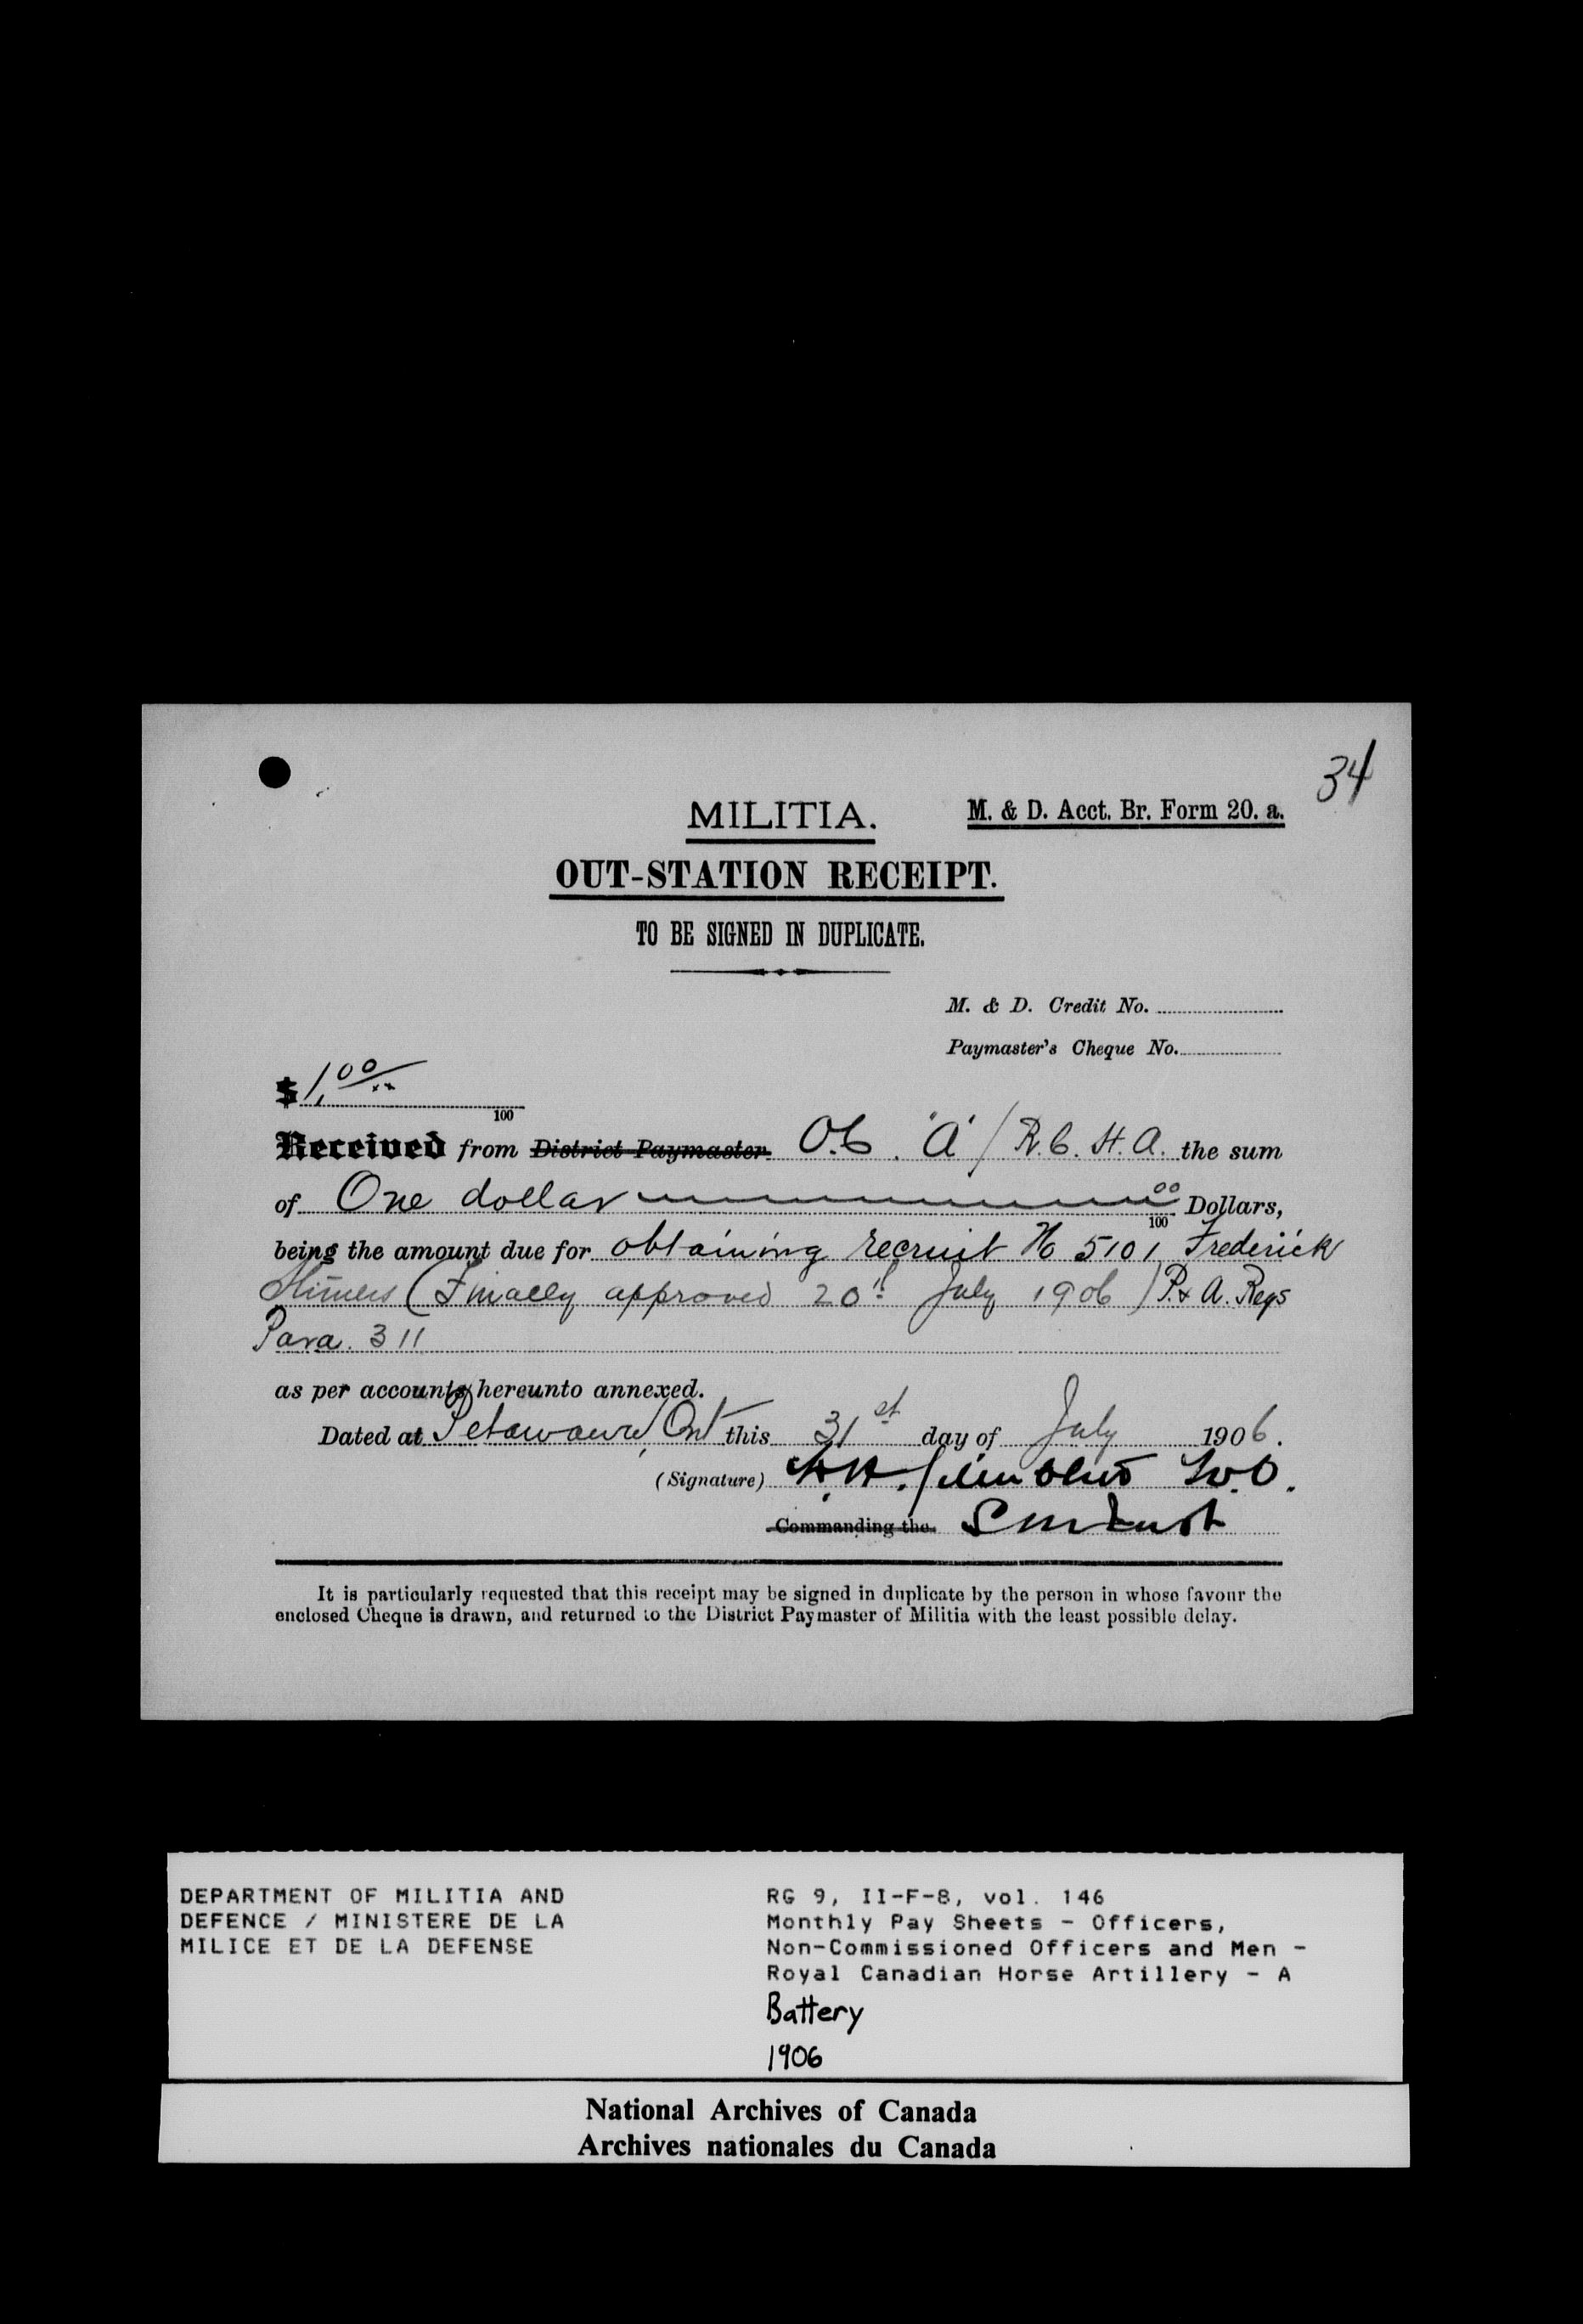 34
MILITIA.
M. & D. Acct. Br. Form 20. a.
OUT-STATION RECEIPT.
TO BE SIGNED IN DUPLICATE.
M. & D. Credit No.
Paymaster's Cheque No.
$ 1.00
100
Received from District Paymaster O.C. 'A' / R.C.H.A. the sum
of One dollar 00/100 Dollars,
being the amount due for obtaining recruit No 5101 Frederick
(Finally approved 20th July 1906) P. & A. Regs
Para. 311
as per accounts hereunto annexed.
Dated at Petawawa, Ont this 31st day of July 1906.
(Signature) W.O.
Commanding the
It is particularly requested that this receipt may be signed in duplicate by the person in whose favour the
enclosed Cheque is drawn, and returned to the District Paymaster of Militia with the least possible delay.
DEPARTMENT OF MILITIA AND
DEFENCE / MINISTERE DE LA
MILICE ET DE LA DEFENSE
RG 9, II-F-8, vol. 146
Monthly Pay Sheets - Officers,
Non-Commissioned Officers and Men -
Royal Canadian Horse Artillery - A
Battery
1906
National Archives of Canada
Archives nationales du Canada